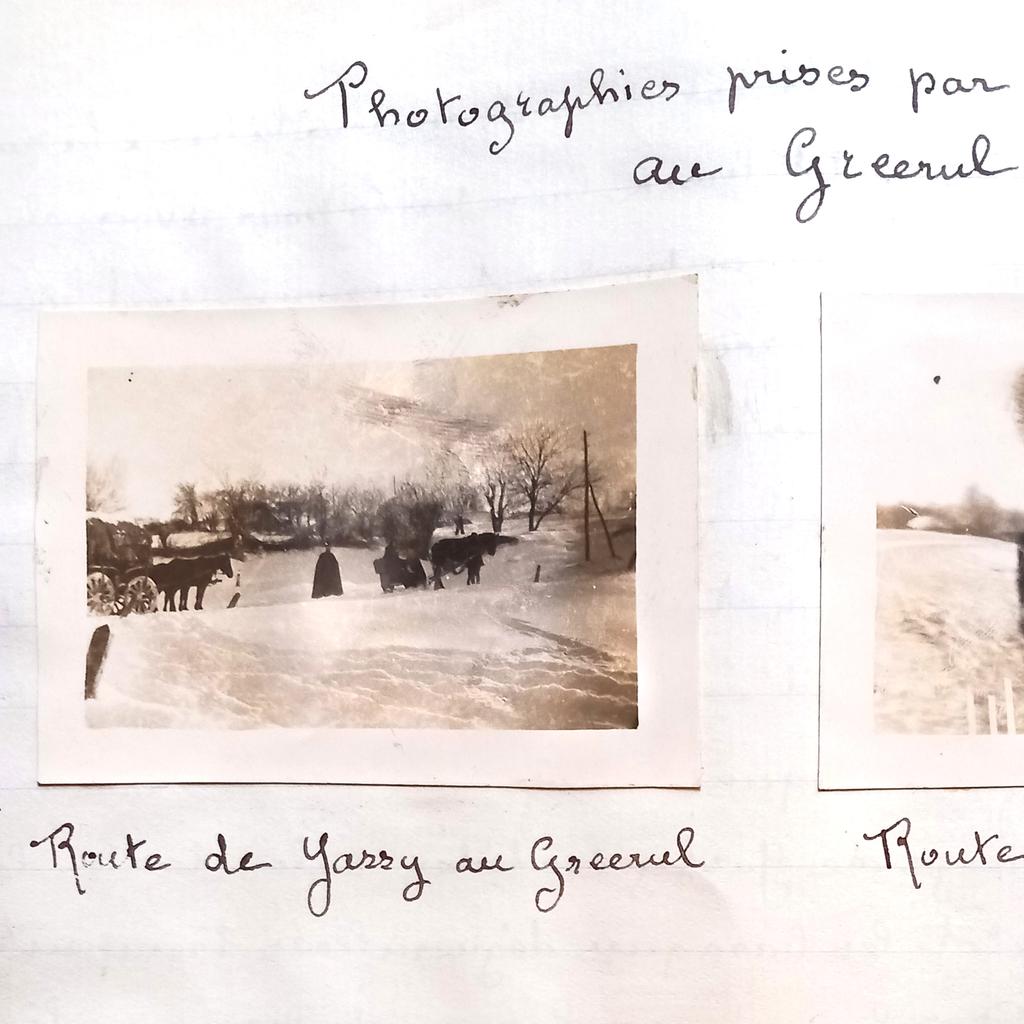 Photographies prises par
au Greerul
Route de Yassy au Greerul
Route